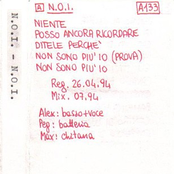 N.O.I. - N.O.I.
A N.O.I.
A133
NIENTE
POSSO ANCORA RICORDARE
DITELE PERCHE'
NON SONO PIU' IO (PROVA)
NON SONO PIU' IO
Reg. 26.04.94
Mix. 07.94
Alex: basso+voce
Peg: batteria
Max: chitarra